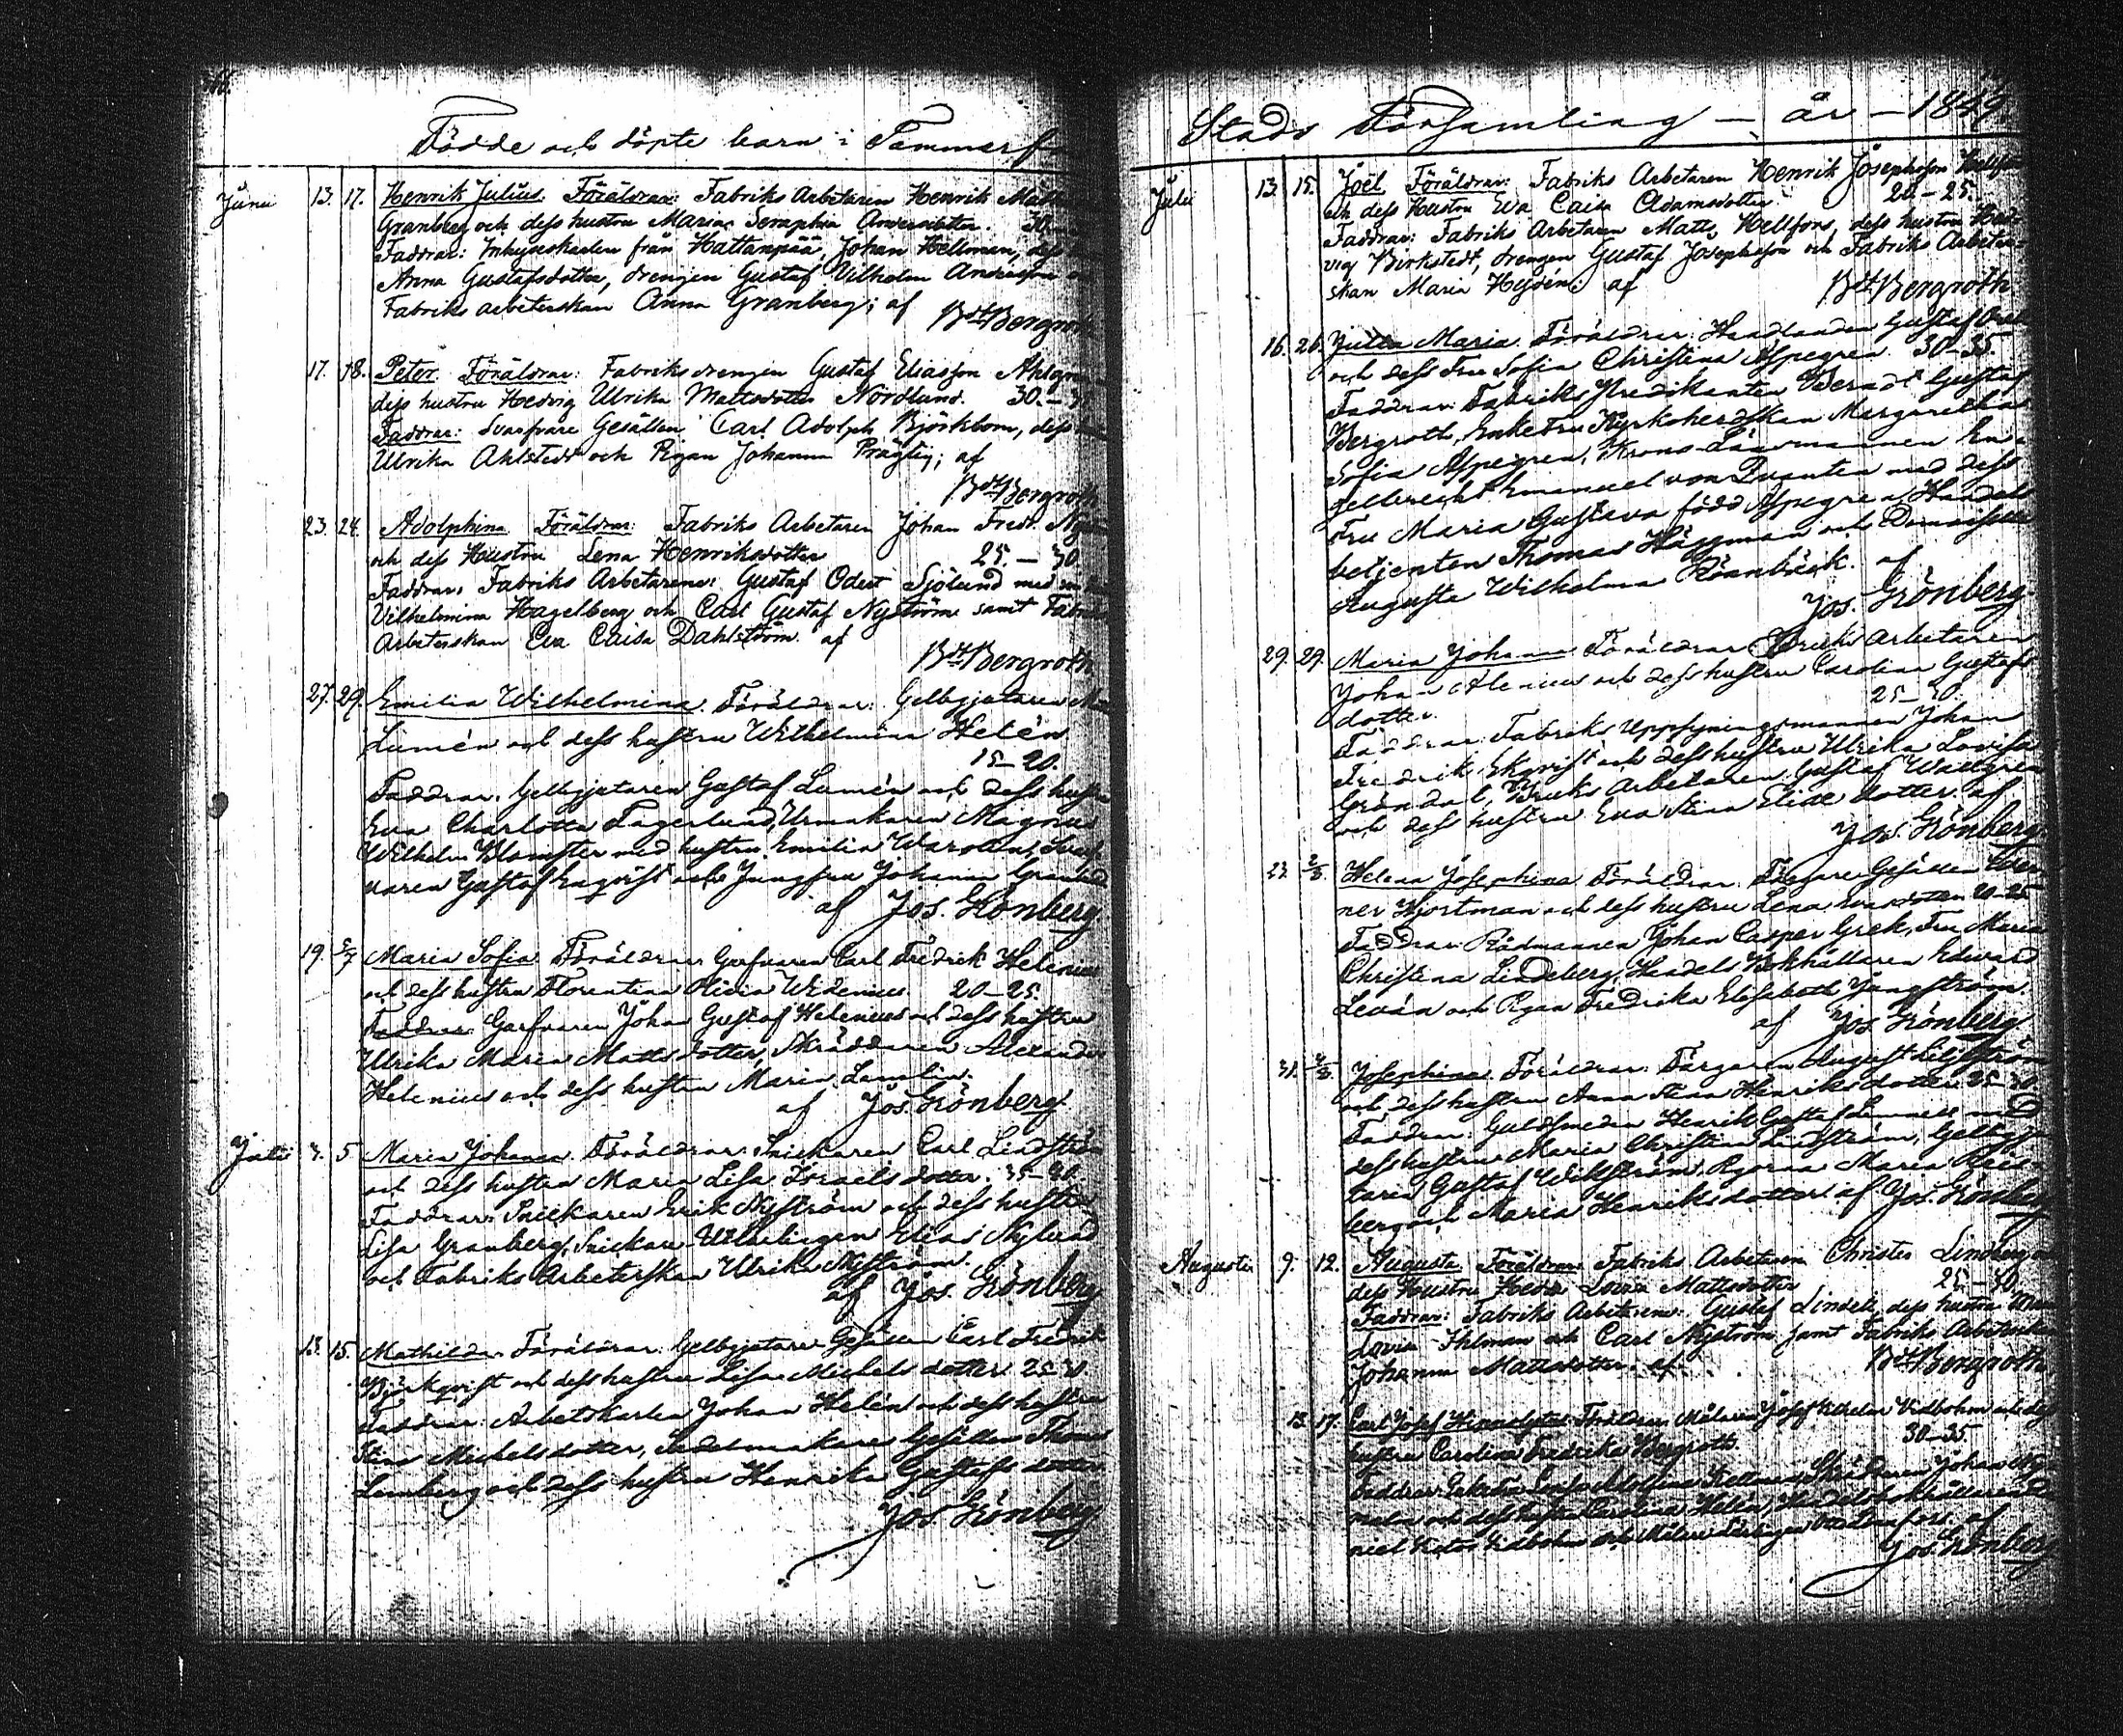 Födde och döpte barn i Tammerf
Juni 13. 17. Henrik Julius. Föräldrar: Fabriks Arbetaren Henrik
Granberg och dess hustru Maria Seraphia Andersdotter. 30
Faddrar: Inhyseskarlen från Hattanpää, Johan Hellman, dess
Anna Gustafsdotter, drengen Gustaf Vilhelm Andersson
Fabriks arbeterskan Anna Granberg; af
Bdt Bergroth
17. 18. Peter. Föräldrar: Fabriks drengen Gustaf Eliasson
dess hustru Hedvig Ulrika Mattsdotter Nordlund. 30.–
Faddrar: Svarfvare Gesällen Carl Adolph Björkbom, dess
Ulrika Ahlstedt och Pigan Johanna Prägtig; af
Bdt Bergroth
23. 24. Adolphina Föräldrar: Fabriks Arbetaren Johan Fredr.
och dess Hustru Lena Henriksdotter 25.–30.
Faddrar: Fabriks Arbetarene: Gustaf Odert Sjölund med
Vilhelmina Hagelberg och Carl Gustaf Nyström samt
Arbeterskan Eva Caisa Dahlström. af
Bdt Bergroth
27. 29. Emilia Wilhelmina. Föräldrar: Gelbgjutaren
Lumén och dess hustru Wilhelmina Helén
15–20.
Faddrar: Gelbgjutaren Gustaf Lumén och dess hustru
Eva Charlotta Fagerlund, Urmakaren Magnus
Wilhelm Blomster med hustru Emilia Warolin,
varen Gustaf Enqvist och Jungfru Johanna
af Jos. Grönberg.
19. 5/7 Maria Sofia Föräldrar Garfvaren Carl Fredrik Helenius
och dess hustru Florentina Olivia Widenius 20–25.
Faddrar: Garfvaren Johan Gustaf Helenius och dess hustru
Ulrika Maria Mattsdotter, Skräddaren Alexander
Helenius och dess hustru Maria
af Jos. Grönberg
Juli 5. Maria Johanna. Föräldrar: Snickaren Carl Lindström
och dess hustru Maria Lisa Israelsdotter. 35–40.
Faddrar: Snickaren Erik Nyström och dess hustru
Lisa Granberg, Snickare Utlärlingen Elias Nylund
och Fabriks Arbeterskan Ulrika Nyström.
af Jos. Grönberg
13. 15. Mathilda. Föräldrar: Gelbgjutare Gesällen Carl Fredrik
Björkqvist och dess hustru Lisa Michelsdotter. 25–30
Faddrar: Arbetskarlen Johan Helén och dess hustru
Stina Michelsdotter, Sadelmakare Gesällen Thomas
Lemberg och dess hustru Henrika Gustafsdotter
Jos. Grönberg
Stads Församling – år – 1849
Juli 13. 15. Joel. Föräldrar: Fabriks Arbetaren Henrik Josephsson
och dess Hustru Eva Caisa Adamsdotter. 20–25.
Faddrar: Fabriks Arbetaren Matts Hellfors, dess hustru Hed-
vig Birkstedt, drengen Gustaf Josephsson och Fabriks Arbeter-
skan Maria Heydén; af Bdt Bergroth
16. 26. Julia Maria. Föräldrar: Handlanden Gustaf
och dess Fru Sofia Christina Aspegren. 30–35.
Faddrar: Fabriks Predikanten Berndt Gustaf
Bergroth, Enkefru Kyrkoherdskan Margaretha
Sofia Aspegren, Krono Länsmannen En-
gelbrecht Emanuel von Qvanten med dess
Fru Maria Gustava född Aspegren, Handels
betjenten Thomas Häggman och Demoiselle
Augusta Wilhelmina Rönnbäck. af
Jos. Grönberg
29. 29. Maria Johanna Föräldrar Bruks Arbetaren
Johan Alenius och dess hustru Carolina Gustafs
dotter. 25–30.
Faddrar: Fabriks Uppsyningsmannen Johan
Fredrik Ekqvist och dess hustru Ulrika Lovisa
Gröndal, Bruks Arbetaren Gustaf Wallgren
och dess hustru Eva Stina Eliædotter. af
Jos. Grönberg
22. 2/8. Helena Josephina Föräldrar: Färgare Gesällen
ner Hjortman och dess hustru Lena Evasdotter 20–25
Faddrar: Rådmannen Johan Casper Grek, Fru Maria
Christina Lindeberg, Handels Bokhållaren Edvard
Leván och Pigan Fredrika Elisabeth Ljungström.
af Jos. Grönberg
31. Josephina. Föräldrar: Färgaren August Liljeström
och dess hustru Anna Stina Henriksdotter. 25–30
Faddrar: Guldsmeden Henrik Gustaf med
dess hustru Maria Christina Lindström, Gelbgju-
taren Gustaf Wikström, Pigorna Maria
berg och Maria Henriksdotter. af Jos. Grönberg
Augusti 9. 12. Augusta. Föräldrar: Fabriks Arbetaren Christer Lindberg
dess Hustru Hedda Lovisa Mattsdotter 25.–30.
Faddrar: Fabriks Arbetarene: Gustaf Lindell, dess hustru
Lovisa Ihlman och Carl Nyström samt Fabriks Arbeterskan
Johanna Mattsdotter. af Bdt Bergroth
17. Carl Josef Föräldrar: Målaren Josef Wilhelm Vidbohm och dess
hustru Carolina Fredrika Bergroth. 30–35
Faddrar: Johan
och dess hustru Carolina
af
Jos. Grönberg